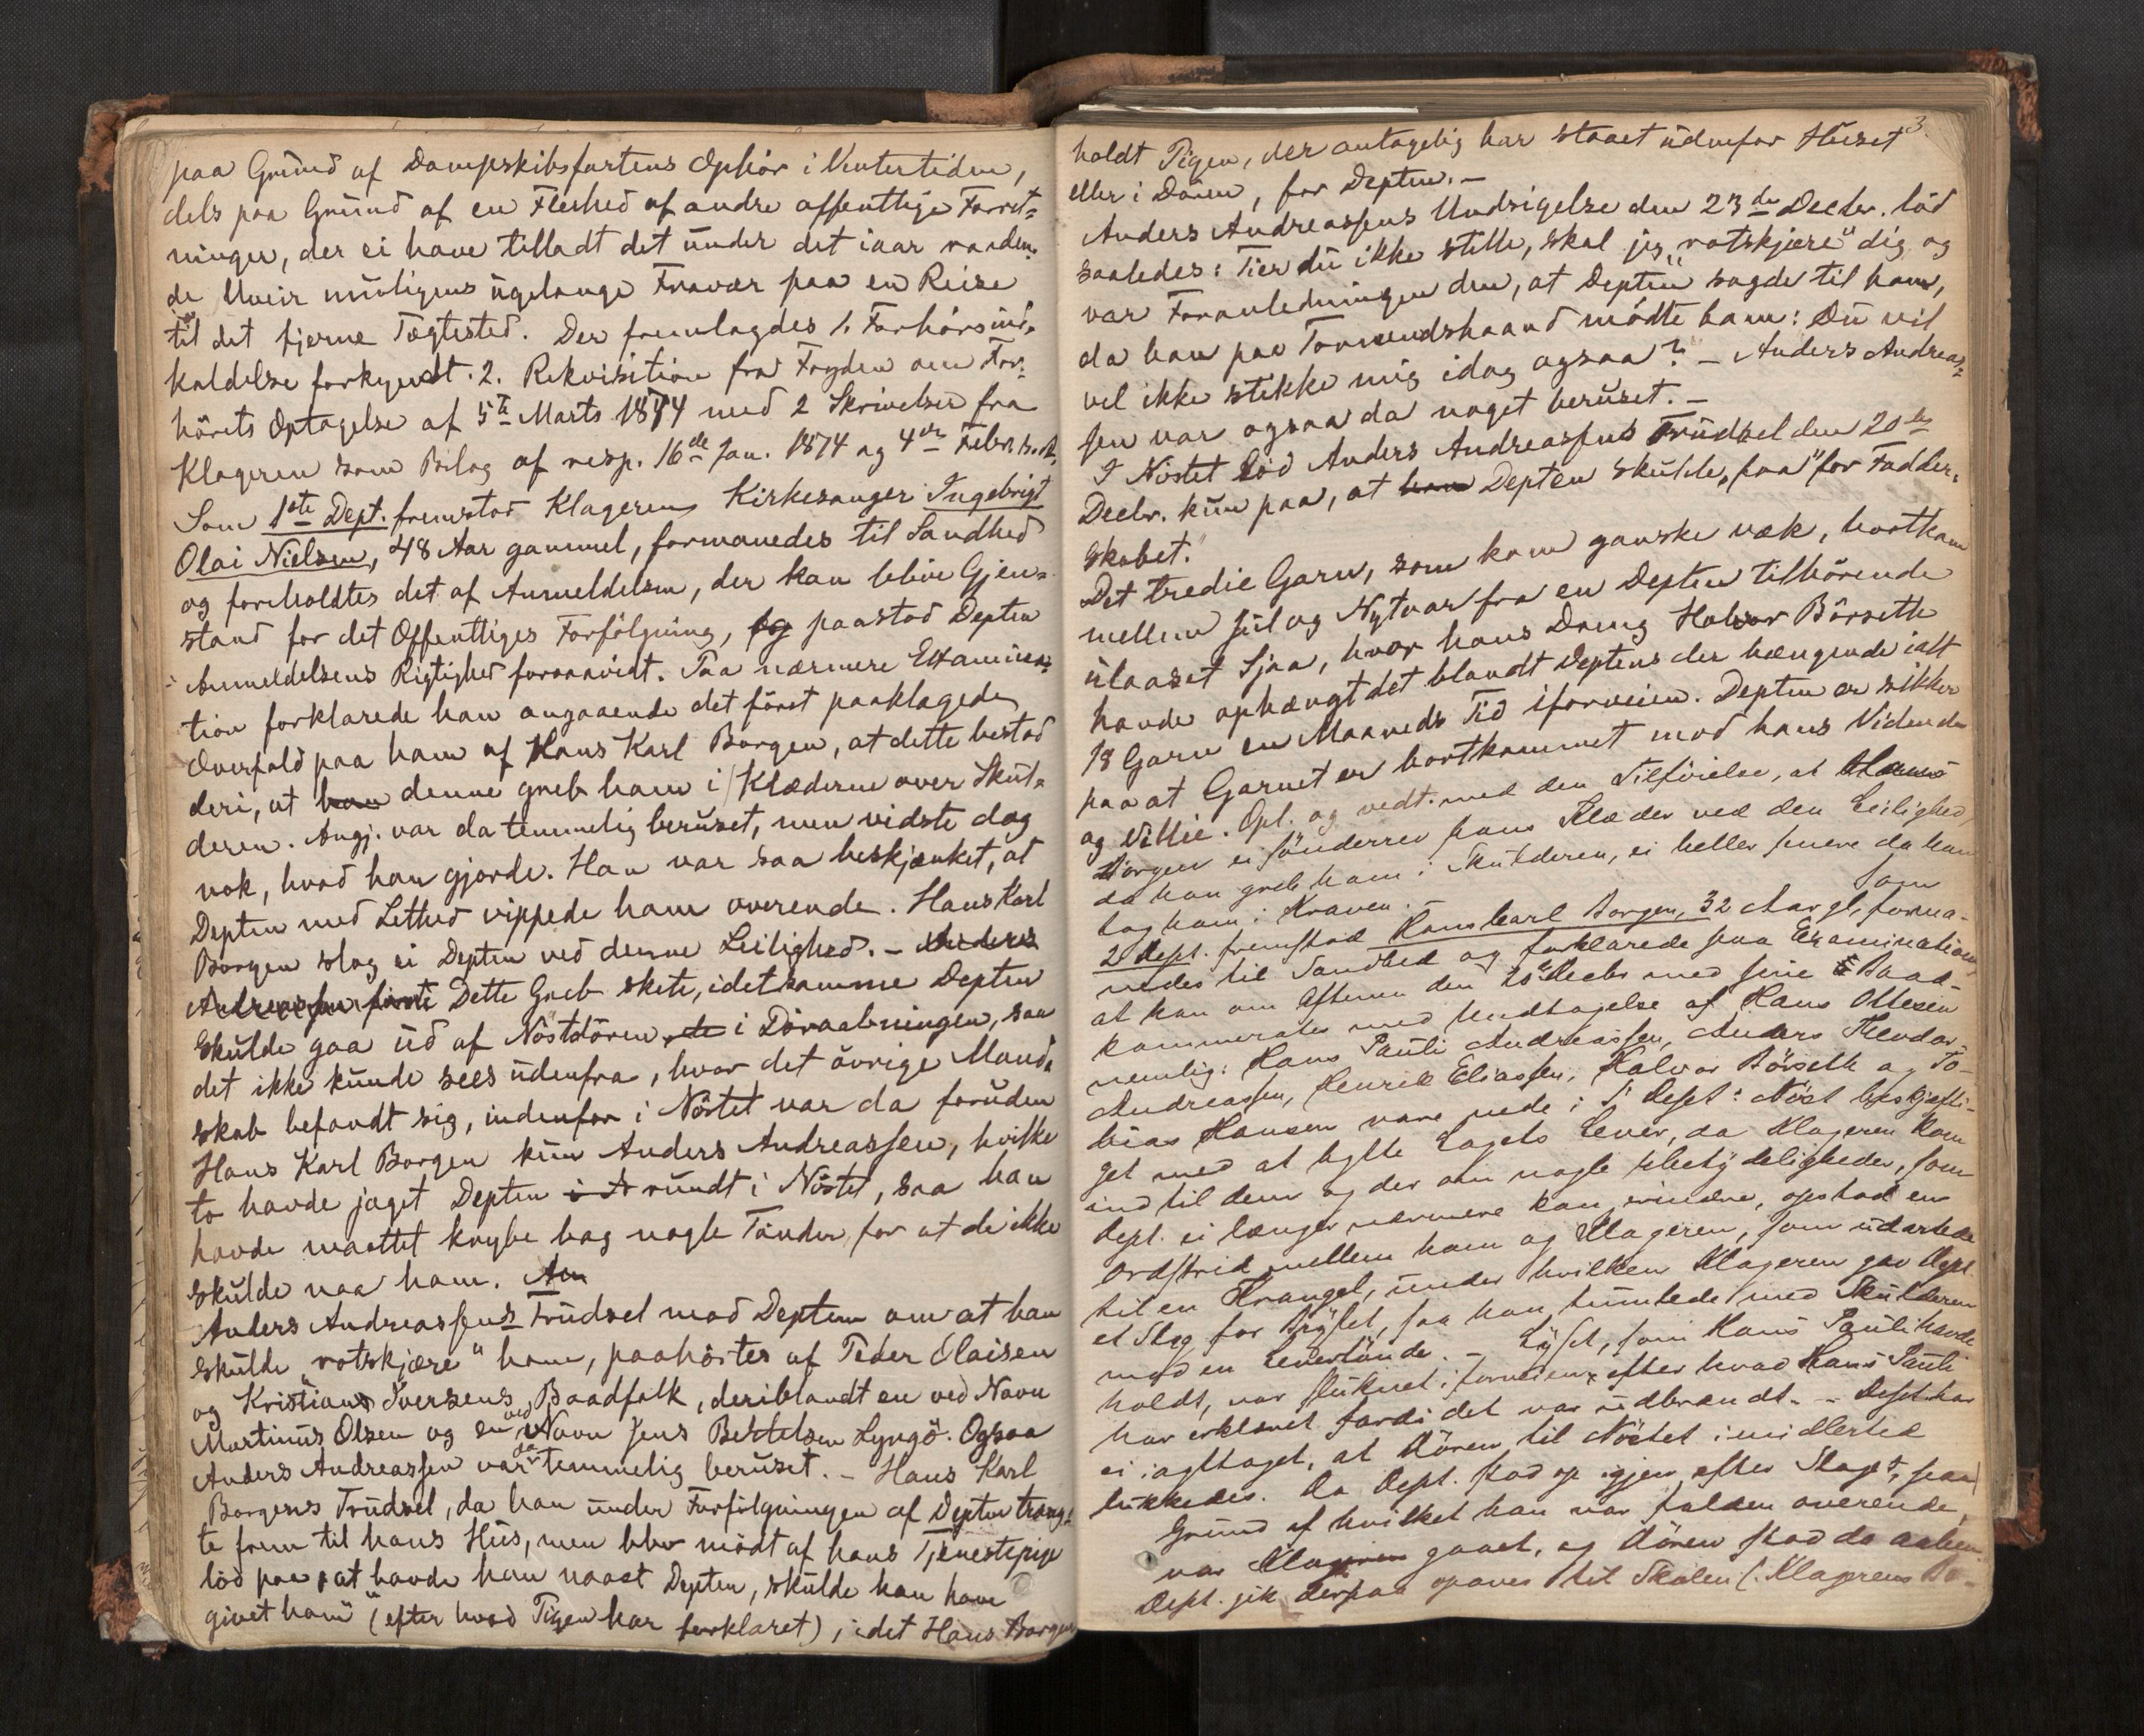 paa Grund af Dampskibsfartens Ophør i Vintertiden,
dels paa Grund af en Fleshed af andre offentlige Forret-
ninger, der ei have tilladt det under det iaar raaden-
de Uveir muligens ugelange Fravær paa en Reise
til det fjerne Tægtested. Der fremlagdes 1. Forhørsind-
kaldelse forkyndt. 2. Rekvisition fra Fogden om For-
hørets Optagelse af 5te Marts 1874 med 2 Skrivelser fra
Klageren som Bilag af resp. 16de Jan. 1874 og 4de Febr. s. A.
Som 1ste Dept. fremstod Klageren Kirkesanger Ingebrigt
Olai Nielsen, 48 Aar gammel, formanedes til Sandhed
og foreholdtes det af Anmeldelsen, der kan blive Gjen-
stand for det Offentliges Forfølgning, og paastod Depten
Anmeldelsens Rigtighed forsaavidt. Paa nærmere Examina-
tion forklarede han angaaende det først paaklagede
Overfald paa ham af Hans Karl Borgen, at dette bestod
deri, at han denne greb ham i Klæderne over Skul-
deren. Angj. var da temmelig beruset, men vidste dog
nok, hvad han gjorde. Han var saa beskjænket, at
Depten med Lethed vippede ham overende. Hans Karl
Borgen slog ei Depten ved denne Leilighed. - Anders
Andreassen første Dette Greb skete, idetsamme Depten
skulde gaa ud af Nøstdøren, i Døraabningen, saa
det ikke kunde sees udenfra, hvor det øvrige Mand-
skab befandt sig, indenfor i Nøstet var da foruden
Hans Karl Borgen kun Anders Andreassen, hvilke
to havde jaget Depten rundt i Nøstet, saa han
havde maattet krybe bag nogle Tønder, for at de ikke
skulde naa ham. An
Anders Andreassens Trudsel mod Depten om at han
skulde "rotskjære" ham, paahørtes af Peder Olaisen
og Kristian Iversens Baadfolk, deriblandt en ved Navn
Martinus Olsen og en ved Navn Jens Bertelsen Lyngø. Ogsaa
Anders Andreassen var da temmelig beruset. - Hans Karl
Borgens Trudsel, da han under Forfølgningen af Depten træng-
te frem til hans Hus, men blev mødt af hans Tjenestepige
lød paa, at havde han naaet Depten, skulde han have
"givet ham" (efter hvad Pigen har forklaret), idet Hans Borgen
3.
holdt Pigen, der antagelig har staaet udenfor Huset
eller i Døren, for Depten. -
Anders Andreassens Undsigelse den 23de Decbr. lød
saaledes: Tier du ikke stille, skal jeg "rotskjære" dig og
var Foranledningen den, at Depten sagde til ham,
da han paa Tormundshaand mødte ham: Du vil
vel ikke stikke mig idag ogsaa? - Anders Andreas-
sen var ogsaa da noget beruset. -
I Nøstet lød Anders Andreassens Trudsel den 20de
Decbr. kun paa, at han Depten skulde "faa" for Fadder-
skabet.
Det tredie Garn, som kom ganske væk, bortkom
mellem Jul og Nytaar fra en Depten tilhørende
ulaaset Sjaa, hvor hans Dreng Halvor Børseth
havde ophængt det blandt Deptens der hængende ialt
18 Garn en Maaneds Tid iforveien. Depten er sikker
paa at Garnet er bortkommet mod hans Vidende
og Villie. Opl. og vedt. med den Tilføielse, at Hans
Borgen ei sønderrev hans Klæder ved den Leilighed,
da han greb ham i Skulderen, ei heller senere da han
tog ham i Kraven. - Som
2 Dept. fremstod Hans Carl Borgen, 32 Aar gl, forma-
nedes til Sandhed og forklarede paa Examination,
at han om Aftenen den 20de Decbr med sine Baad-
kammerater med Undtagelse af Hans Ottesen
nemlig: Hans Pauli Andreassen, Anders Theodor
Andreassen, Henrik Eliassen, Halvor Børseth og To-
bias Hansen vare nede i 1' Dept: Nøst beskjæfti-
get med at hylte Lagets Lever, da Klageren kom
ind til dem og der om nogle Ubetydeligheder, som
Dept. ei længer nærmere kan erindre, opstod en
Ordstrid mellem ham og Klageren, som udartede
til en Krangel, under hvilken Klageren gav Dept
et Slag for Brystet, saa han tumlede med Skulderen
mod en Levertønde. - Lyset, som Hans Pauli havde
holdt, var slukket iforveien efter hvad Hans Pauli
har erklæret fordi det var udbrændt. - Dept. har
ei iagttaget, at Døren til Nøstet imidlertid
lukkedes. Da Dept. stod op igjen efter Slaget, paa
Grund af hvilket han var falden overende,
var Klageren gaaet, og Døren stod da aaben
Dept. gik derpaa opover til Skolen (: Klagerens Bo-